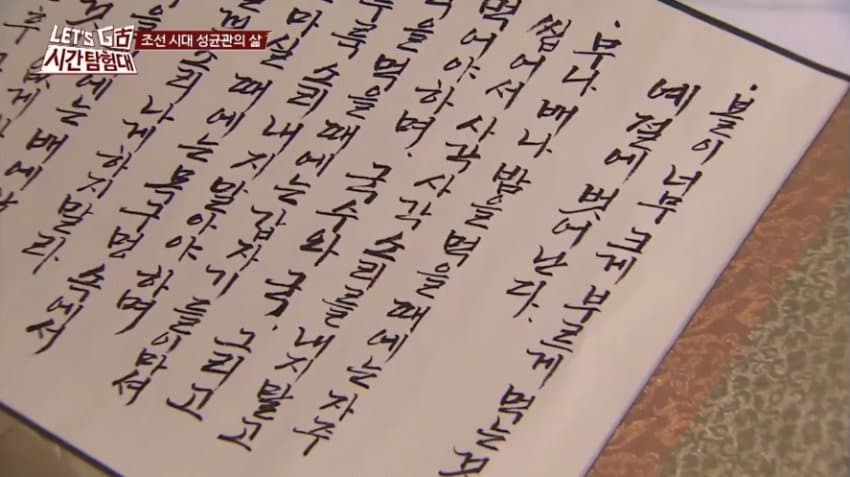 LET'S GO古
시간탐험대
조선 시대 성균관의 삶
·볼이 너무 크게 부르게 먹는
예절에 벗어난다.
·무나 배나 밤을 먹을 때에는 자주
씹어서 사각사각 소리를 내지 말고
먹어야 하며, 국수와 국, 그리고
을 먹을 때에는 갑자기 들이마셔
루룩 소리 내지 말아야 하며
마실 때에는 목구멍 속에서
소리 나게 하지 말라.
에는 배에